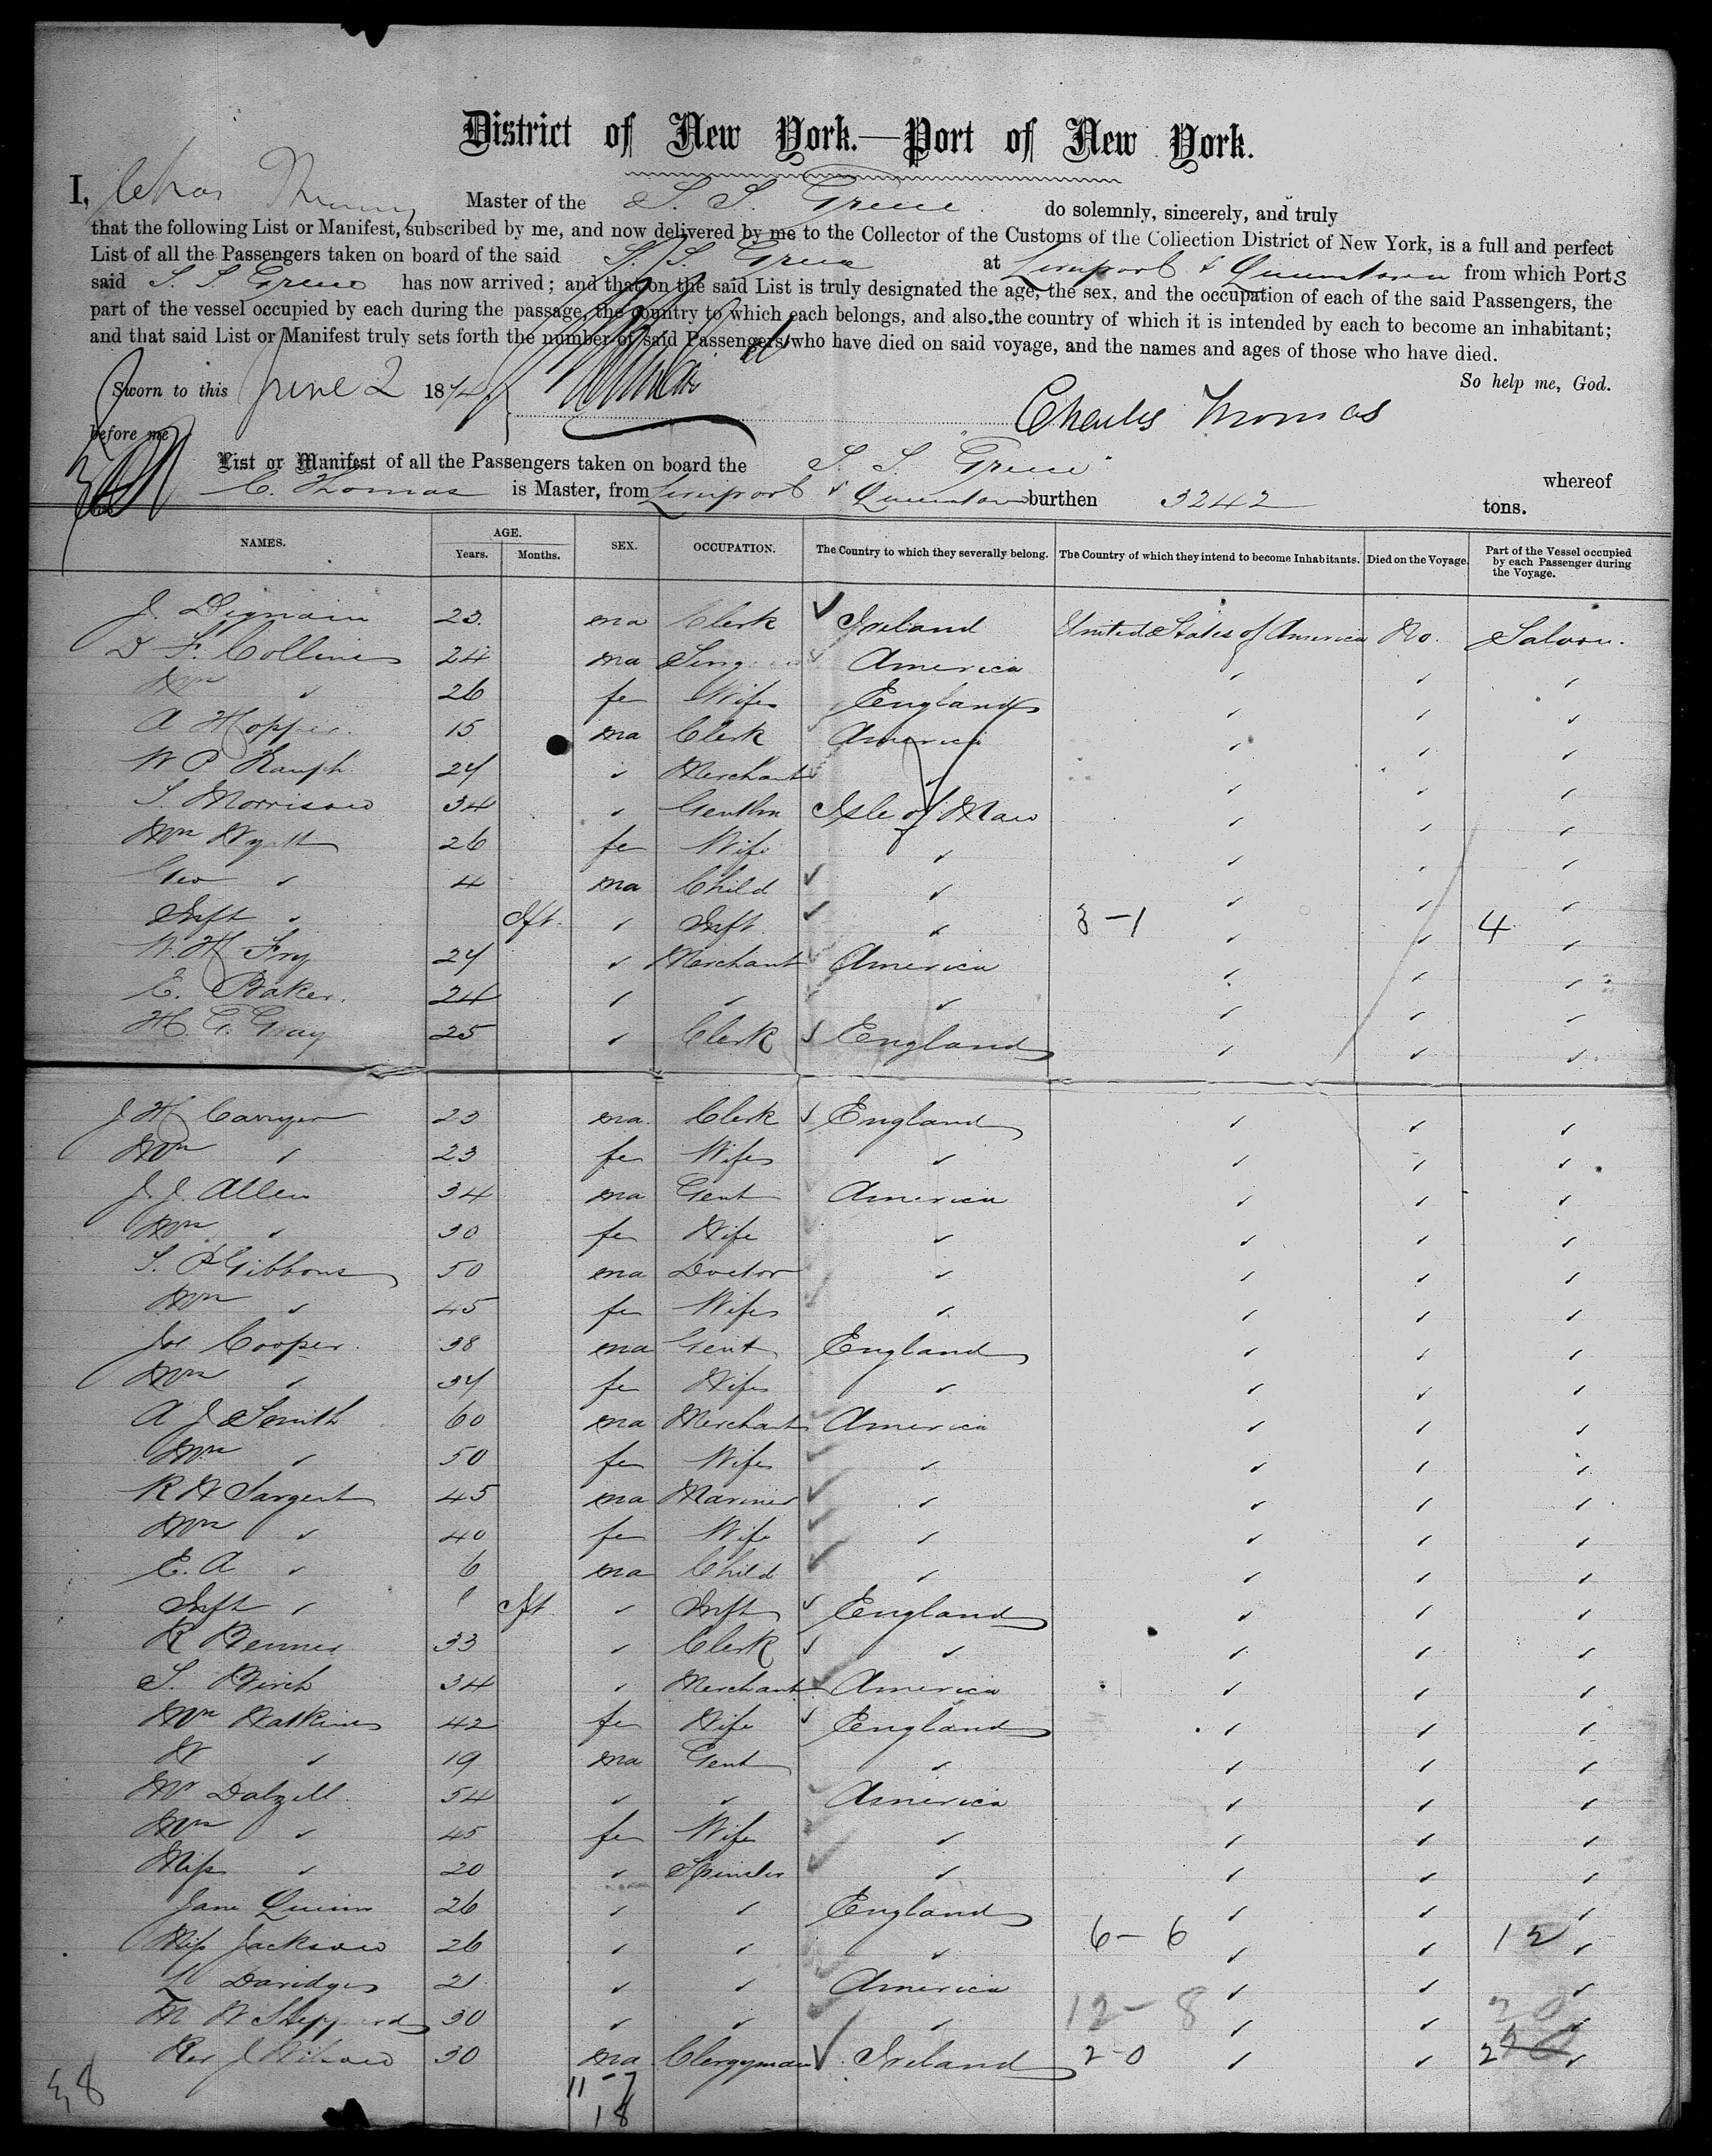 District of New York.—Port of New York.
I, Chas Master of the S. S. Greece do solemnly, sincerely, and truly
that the following List or Manifest, subscribed by me, and now delivered by me to the Collector of the Customs of the Collection District of New York, is a full and perfect
List of all the Passengers taken on board of the said S. S. Greece at Liverpool & Queenstown from which Ports
said S. S. Greece has now arrived; and that on the said List is truly designated the age, the sex, and the occupation of each of the said Passengers, the
part of the vessel occupied by each during the passage, the country to which each belongs, and also the country of which it is intended by each to become an inhabitant;
and that said List or Manifest truly sets forth the number of said Passengers who have died on said voyage, and the names and ages of those who have died.
So help me, God.
Sworn to this June 2 1874
Charles Thomas
before me
List or Manifest of all the Passengers taken on board the S. S. Greece whereof
C. Thomas is Master, from Liverpool & Queenstown burthen 3242 tons.
NAMES. AGE. Years. Months. SEX. OCCUPATION. The Country to which they severally belong. The Country of which they intend to become Inhabitants. Died on the Voyage. Part of the Vessel occupied by each Passenger during the Voyage.
J. Dignain 23. ma Clerk Ireland United States of America No. Saloon.
D F. Collines 24 ma America
Mrs " 26 fe Wife England
A Hopper. 15 ma Clerk America
W P 27 " Merchant "
S. Morrison 34 " Gentlm Isle of Man
Mrs Wyatt 26 fe Wife "
Geo " 4 ma Child "
Inft " Ift. " Inft. " 3-1 4
W. H Fry 27 " Merchant America
E. Baker. 24 " " "
H G. Gray 25 " Clerk England
J H Carryer 23 ma. Clerk England
Mrs " 23 fe Wife "
J. J. Allen 34 ma Gent America
Mrs " 30 fe Wife "
S. P Gibbons 50 ma Doctor "
Mrs " 45 fe Wife "
Jos Cooper. 38 ma Gent England
Mrs " 37 fe Wife "
A J Smith 60 ma Merchant America
Mrs " 50 fe Wife "
R W Sargent 45 ma Mariner "
Mrs " 40 fe Wife "
E. A " 6 ma Child "
Inft " Ift. " Inft England
R Benner 33 " Clerk "
S. Birch 34 " Merchant America
Mrs Watkins 42 fe Wife England
W " 19 ma Gent "
Mr Dalzell. 54 " " America
Mrs " 45 fe Wife "
Miss " 20 " Spinster "
Jane Quinn 26 " " England
Miss Jackson 26 " " " 6-6 12
L Davidge 21 " " America
M W Sheppard 30 " " " 12-8 20
Rev J Wilson 30 ma Clergyman Ireland 2-0 2
11-7
18
38